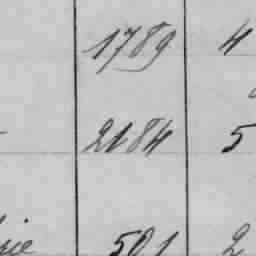 1789 4
2184 5
501 2